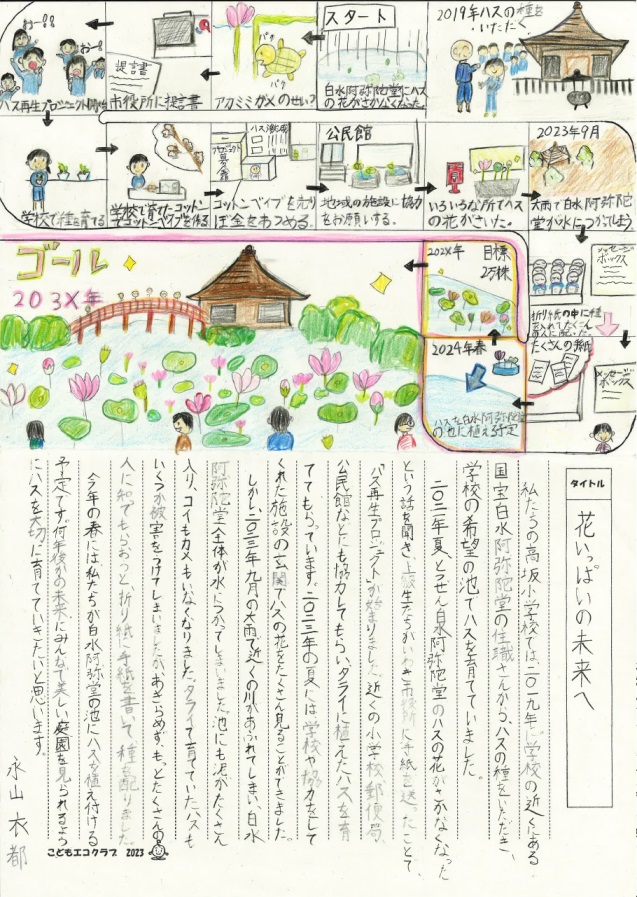 2019年ハスの種を
いただく
スタート
白水阿弥陀堂にハス
の花がさかなくなった。
アカミミガメのせい?
パク
パク
提言書
市役所に提言書
おー!!
おー!
ハス再生プロジェクト開始
学校で種を育てる
学校で育てたコットン
でコットンベイブを作る
コットンベイブを売り
ぼ金をあつめる。
公民館
地域の施設に協力
をお願いする。
いろいろな所でハス
の花がさいた。
2023年9月
大雨で白水阿弥陀
堂が水につかってしまう
メッセージ
ボックス
折り紙の中に種
たくさんの手紙
メッセージ
ボックス
2024年春
ハスを白水阿弥陀堂
の池に植える予定
202X年
目標
2万株
ゴール
203X年
タイトル
花いっぱいの未来へ
私たちの高坂小学校では二〇一九年に学校の近くにある
国宝白水阿弥陀堂の住職さんから、ハスの種をいただき、
学校の希望の池でハスを育てていました。
二〇二一年夏、とつぜん白水阿弥陀堂のハスの花がさかなくなった
という話を聞き、上級生たちがいわき市役所に手紙を送ったことで、
「ハス再生プロジェクト」が始まりました。近くの小学校、郵便局、
公民館などにも協力してもらい、タライに植えたハスを育
ててもらっています。二〇二三年の夏には学校や協力をして
くれた施設の玄関でハスの花をたくさん見ることができました。
しかし、二〇二三年九月の大雨で近くの川があふれてしまい、白水
阿弥陀堂全体が水につかってしまいました。池にも泥がたくさん
入り、コイもカメもいなくなりました。タライで育てていたハスも
いくつか被害をうけてしまいましたが、あきらめず、もっとたくさんの
人に知ってもらおうと、折り紙に手紙を書いて、種を配りました。
今年の春には、私たちが白水阿弥陀堂の池にハスを植え付ける
予定です。何年後かの未来にみんなで美しい庭園を見られるよう
にハスを大切に育てていきたいと思います。
永山衣都
こどもエコクラブ 2023